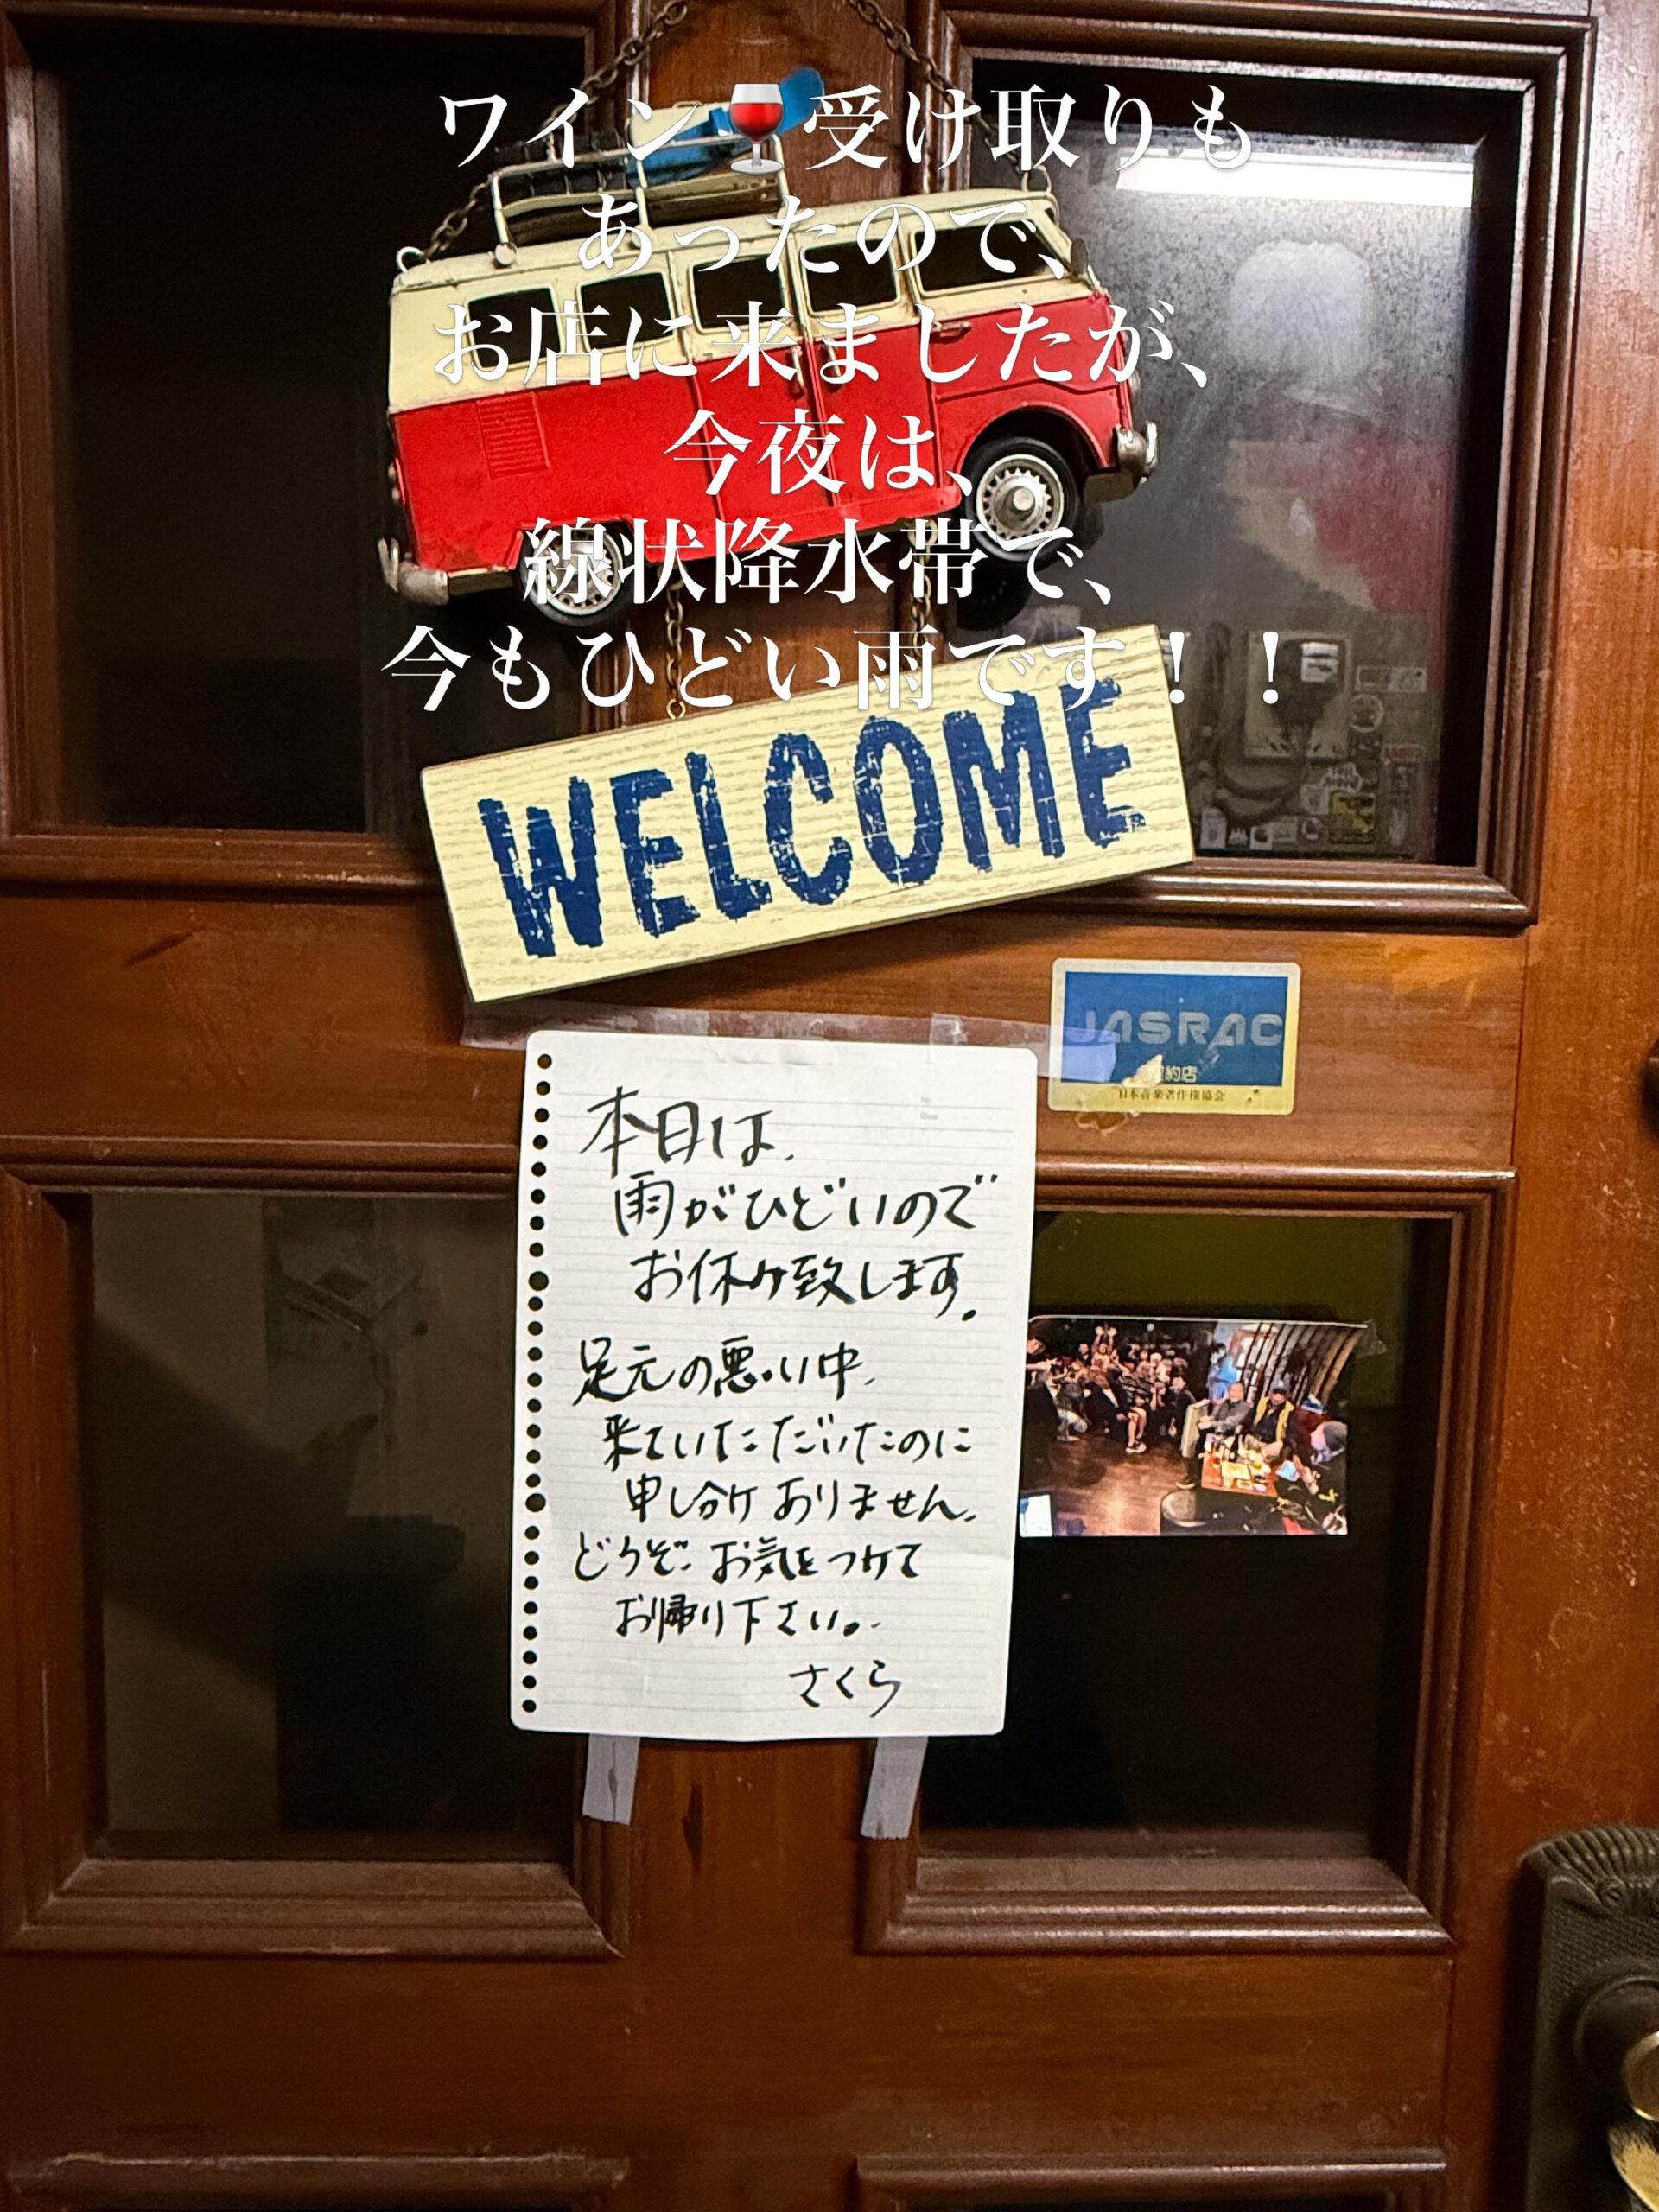 ワイン🍷受け取りも
あったので、
お店に来ましたが、
今夜は、
線状降水帯で、
今もひどい雨です！！
WELCOME
JASRAC
約店
日本音楽著作権協会
本日は、
雨がひどいので
お休み致します。
足元の悪い中、
来ていただいたのに
申し分けありません。
どうぞ、お気をつけて
お帰り下さい。
さくら